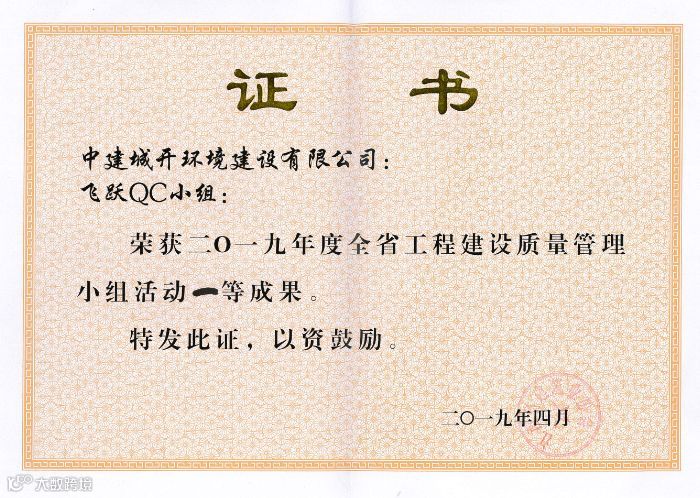 证 书
中建城开环境建设有限公司：
飞跃QC小组：
荣获二O一九年度全省工程建设质量管理
小组活动一等成果。
特发此证，以资鼓励。
二〇一九年四月
大数跨境